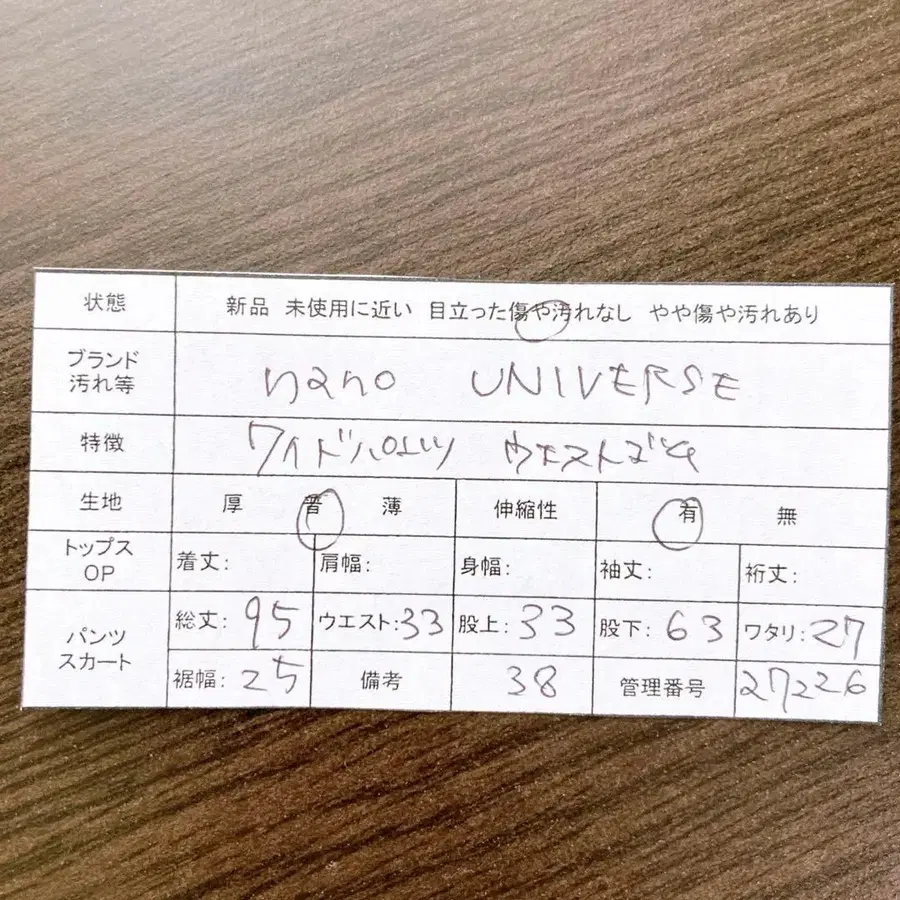 状態 新品 未使用に近い 目立った傷や汚れなし やや傷や汚れあり
ブランド
汚れ等
nano UNIVERSE
特徴 ワイドパンツ ウエストゴム
生地 厚 普 薄 伸縮性 有 無
トップス
OP
着丈: 肩幅: 身幅: 袖丈: 裄丈:
パンツ
スカート
総丈: 95 ウエスト:33 股上: 33 股下: 63 ワタリ:27
裾幅: 25 備考 38 管理番号 27226